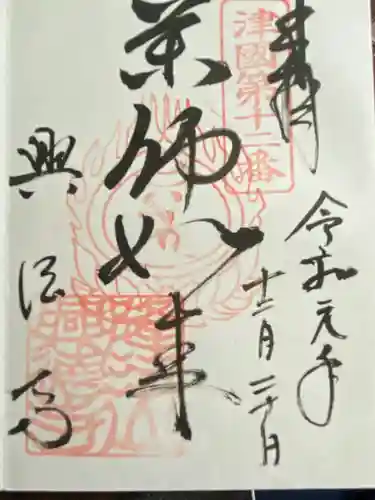 奉拝
津國第十三番
令和元年
十二月三十日
薬師如来
興徳寺